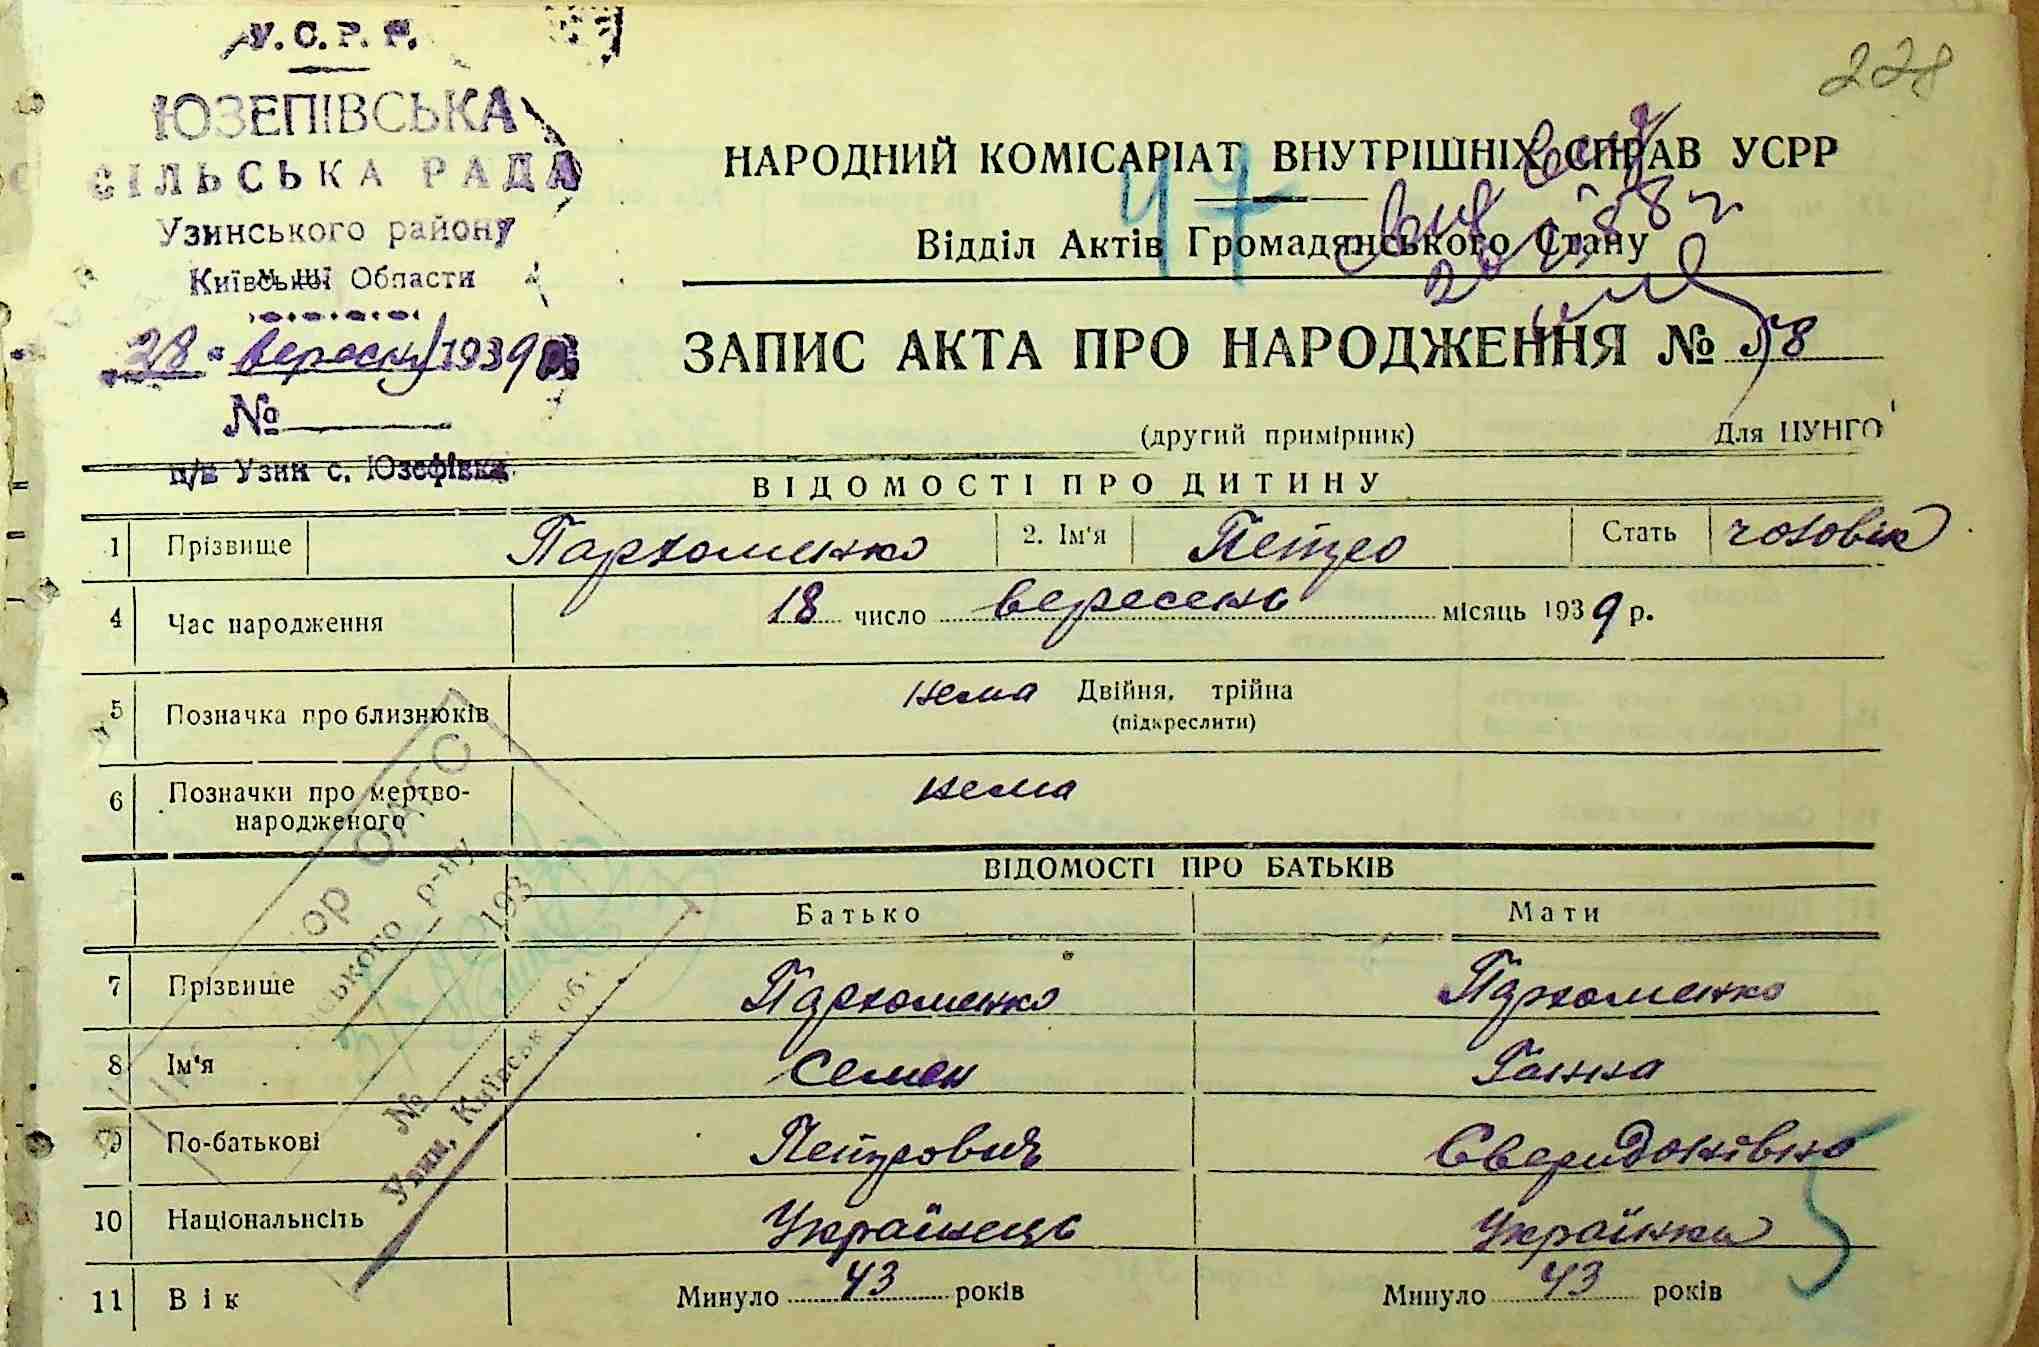 У.С.Р.Р.
ЮЗЕПІВСЬКА
СІЛЬСЬКА РАДА
Узинського району
Київської Области
28 вересня 1939
№
п/в Узин с. Юзефівка
228
НАРОДНИЙ КОМІСАРІАТ ВНУТРІШНІХ СПРАВ УСРР
47
Відділ Актів Громадянського Стану
ЗАПИС АКТА ПРО НАРОДЖЕННЯ № 58
(другий примірник) Для ЦУНГО
ВІДОМОСТІ ПРО ДИТИНУ
1 Прізвище Пархоменко 2. Ім'я Петро Стать чоловік
4 Час народження 18 число вересень місяць 1939 р.
5 Позначка про близнюків нема Двійня, трійна
(підкреслити)
6 Позначки про мертво-
народженого нема
ВІДОМОСТІ ПРО БАТЬКІВ
Батько Мати
7 Прізвище Пархоменко Пархоменко
8 Ім'я Семен Ганна
9 По-батькові Петрович Свиридонівна
10 Національність Українець Українка
11 Вік Минуло 43 років Минуло 43 років
ОАГС
ського р-ну
193
№
Узин, Київськ. обл.